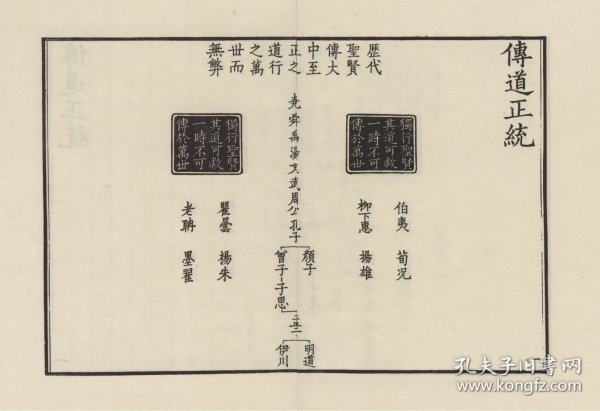 傳道正統
歷代
聖賢
傳大
中至
正之
道行
之萬
世而
無弊
獨行聖賢
其道可救
一時不可
傳於萬世
伯夷 荀況
柳下惠 揚雄
堯舜禹湯文武周公孔子
顏子
曾子 子思
孟子
明道
伊川
獨行聖賢
其道可救
一時不可
傳於萬世
瞿曇 楊朱
老聃 墨翟
孔夫子旧书网
www.kongfz.com